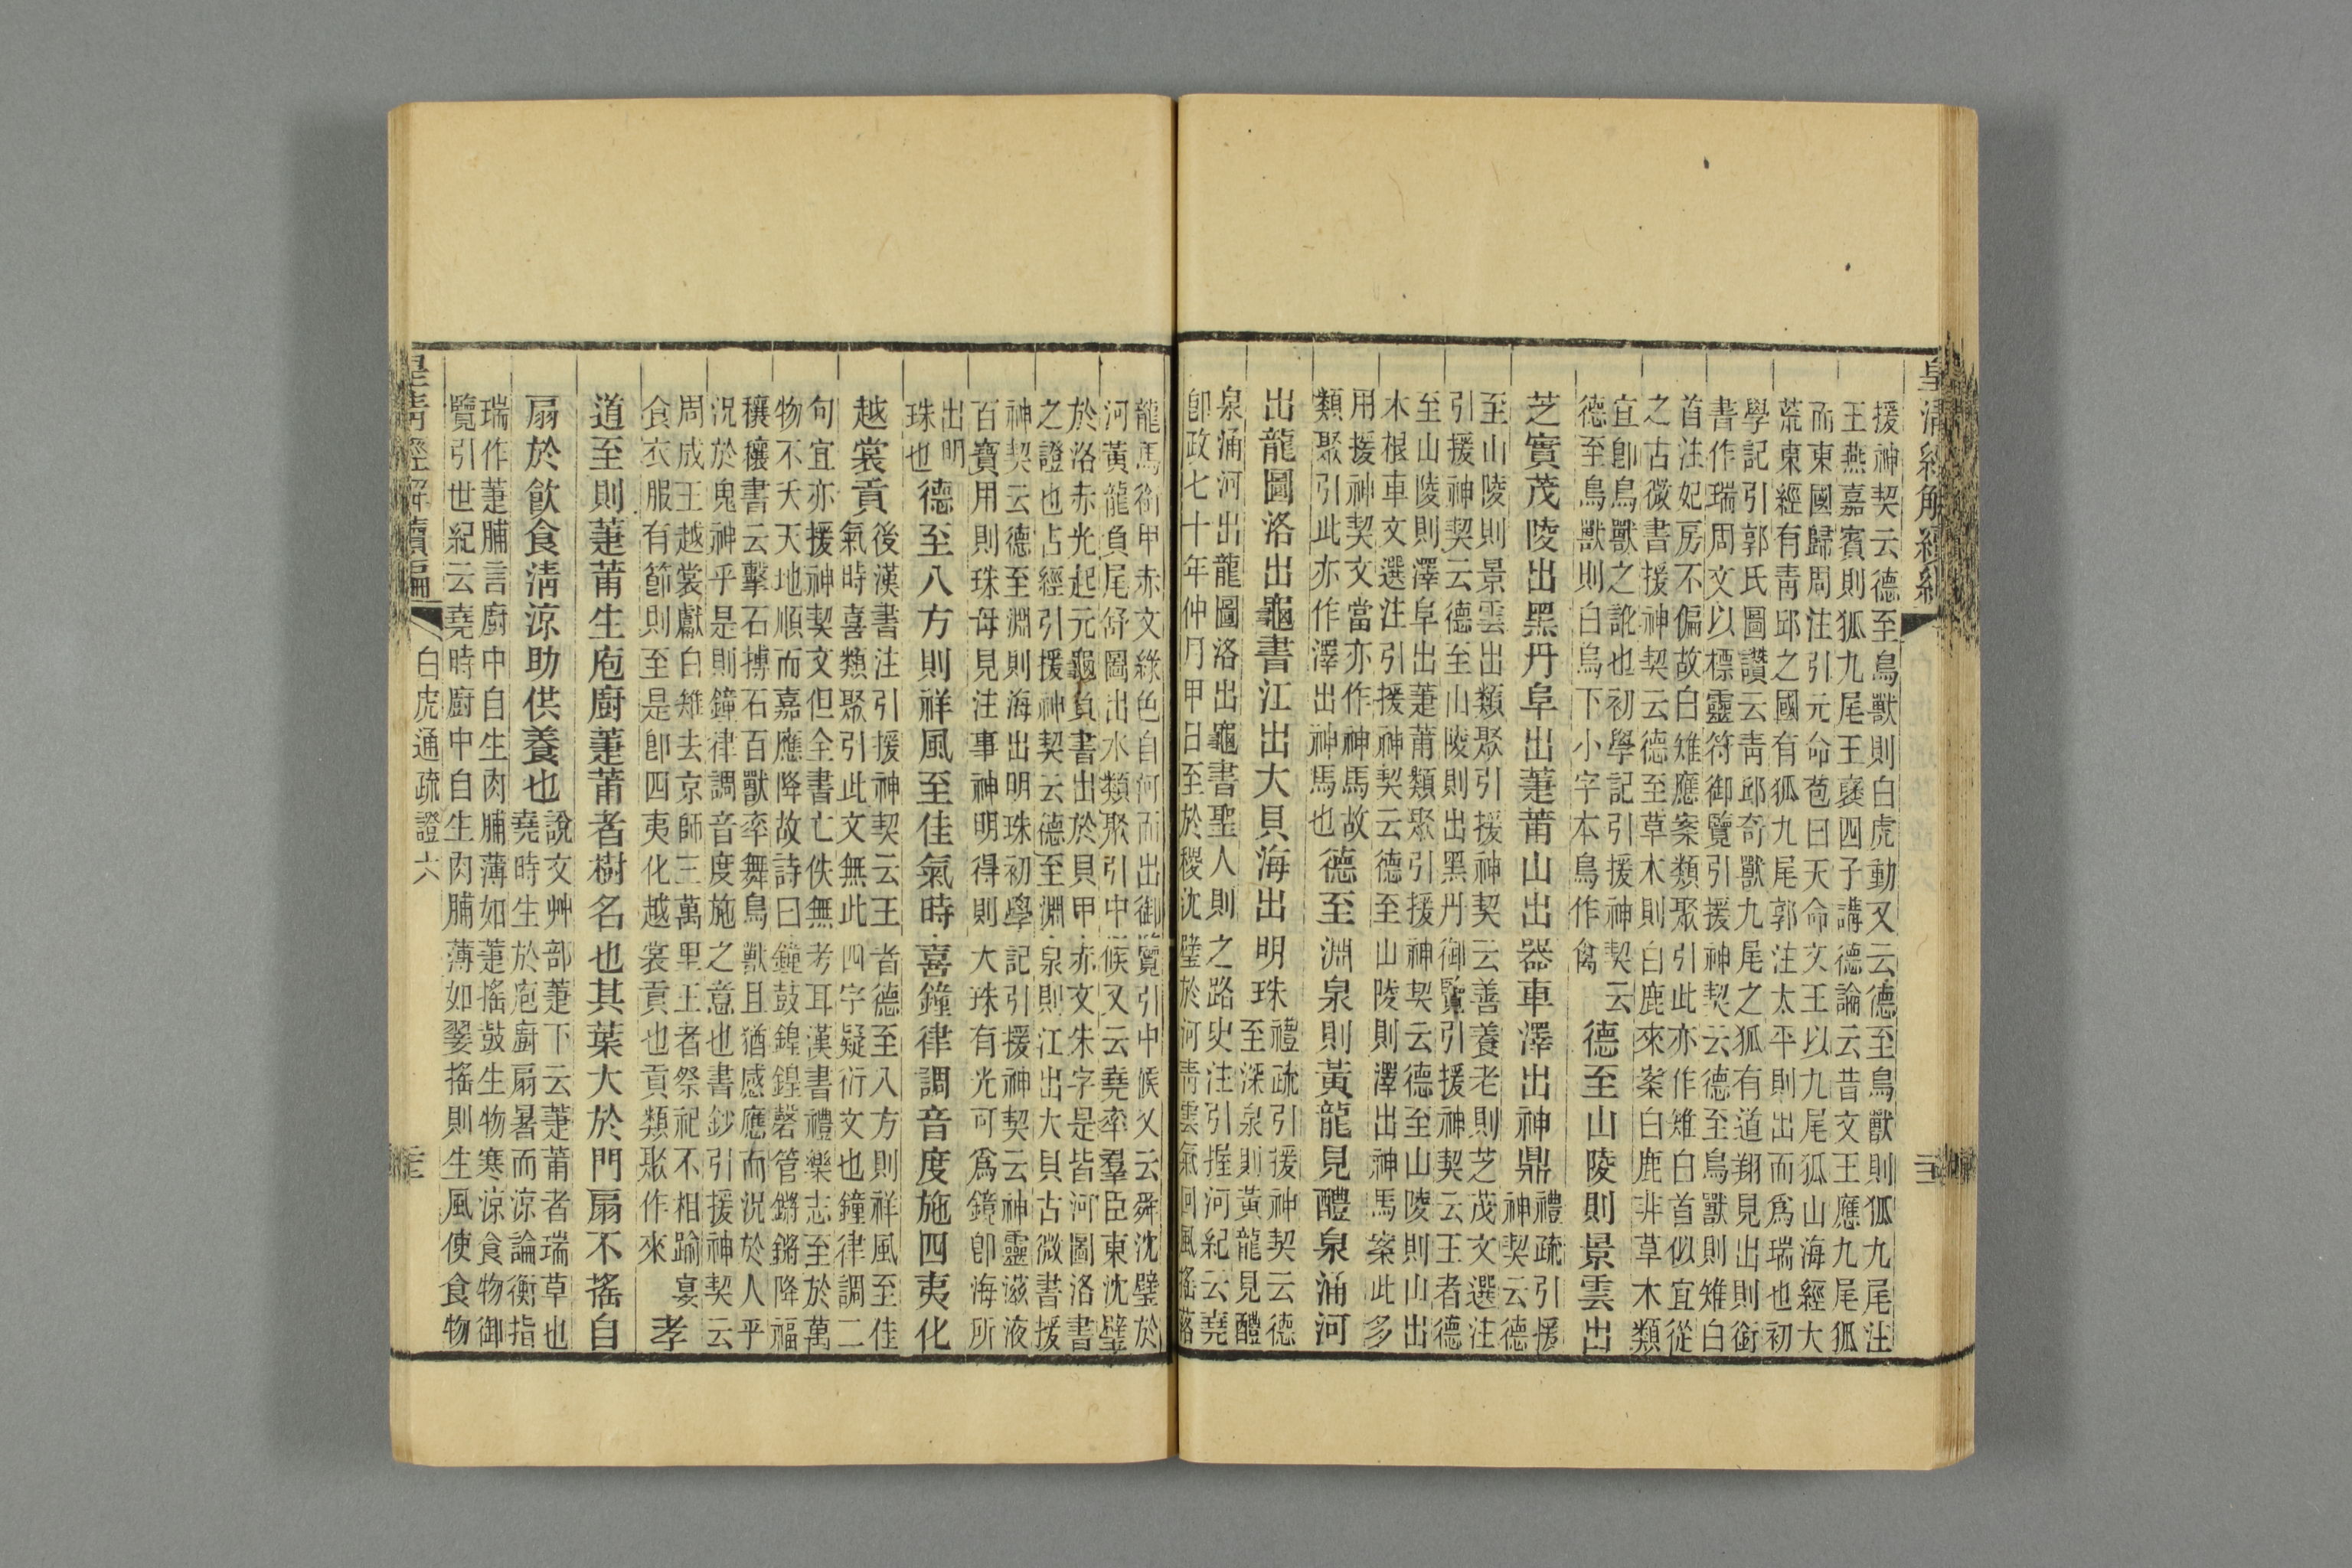 皇清經解續編
援神契云德至鳥獸則白虎動又云德至鳥獸則狐九尾注
王燕嘉賓則狐九尾王襃四子講德論云昔文王應九尾狐
而東國歸周注引元命苞曰天命文王以九尾狐山海經大
荒東經有青邱之國有狐九尾郭注太平則出而爲瑞也初
學記引郭氏圖讚云青邱奇獸九尾之狐有道翔見出則銜
書作瑞周文以標靈符御覽引援神契云德至鳥獸則雉白
首注妃房不偏故白雉應案類聚引此亦作雉白首似宜從
之古微書援神契云德至草木則白鹿來案白鹿非草木類
宜卽鳥獸之訛也初學記引援神契云
德至鳥獸則白烏下小字本鳥作禽
德至山陵則景雲出
芝實茂陵出黑丹阜出萐莆山出器車澤出神鼎
禮疏引援
神契云德
至山陵則景雲出類聚引援神契云善養老則芝茂文選注
引援神契云德至山陵則出黑丹御覽引援神契云王者德
至山陵則澤阜出萐莆類聚引援神契云德至山陵則山出
木根車文選注引援神契云德至山陵則澤出神馬案此多
用援神契文當亦作神馬故
類聚引此亦作澤出神馬也
德至淵泉則黃龍見醴泉涌河
出龍圖洛出龜書江出大貝海出明珠
禮疏引援神契云德
至深泉則黃龍見醴
泉涌河出龍圖洛出龜書聖人則之路史注引握河紀云堯
卽政七十年仲月甲日至於稷沈璧於河青雲氣回風搖落
龍馬銜甲赤文綠色自河而出御覽引中候又云舜沈璧於
河黃龍負尾舒圖出水類聚引中候又云堯率羣臣東沈璧
於洛赤光起元龜負書出於貝甲赤文朱字是皆河圖洛書
之證也占經引援神契云德至淵泉則江出大貝古微書援
神契云德至淵則海出明珠初學記引援神契云神靈滋液
百寶用則珠母見注事神明得則大珠有光可爲鏡卽海所
出明
珠也
德至八方則祥風至佳氣時喜鐘律調音度施四夷化
越裳貢
後漢書注引援神契云王者德至八方則祥風至佳
氣時喜類聚引此文無此四字疑衍文也鐘律調二
句宜亦援神契文但全書亡佚無考耳漢書禮樂志至於萬
物不夭天地順而嘉應降故詩曰鐘鼓鍠鍠磬管鏘鏘降福
穰穰書云擊石拊石百獸率舞鳥獸且猶感應而況於人乎
況於鬼神乎是則鐘律調音度施之意也書鈔引援神契云
周成王越裳獻白雉去京師三萬里王者祭祀不相踰宴
食衣服有節則至是卽四夷化越裳貢也貢類聚作來
孝
道至則萐莆生庖廚萐莆者樹名也其葉大於門扇不搖自
扇於飲食清涼助供養也
說文艸部萐下云萐莆者瑞草也
堯時生於庖廚扇暑而涼論衡指
瑞作萐脯言廚中自生肉脯薄如萐搖鼓生物寒涼食物御
覽引世紀云堯時廚中自生肉脯薄如翣搖則生風使食物
皇清經解續編
白虎通疏證六